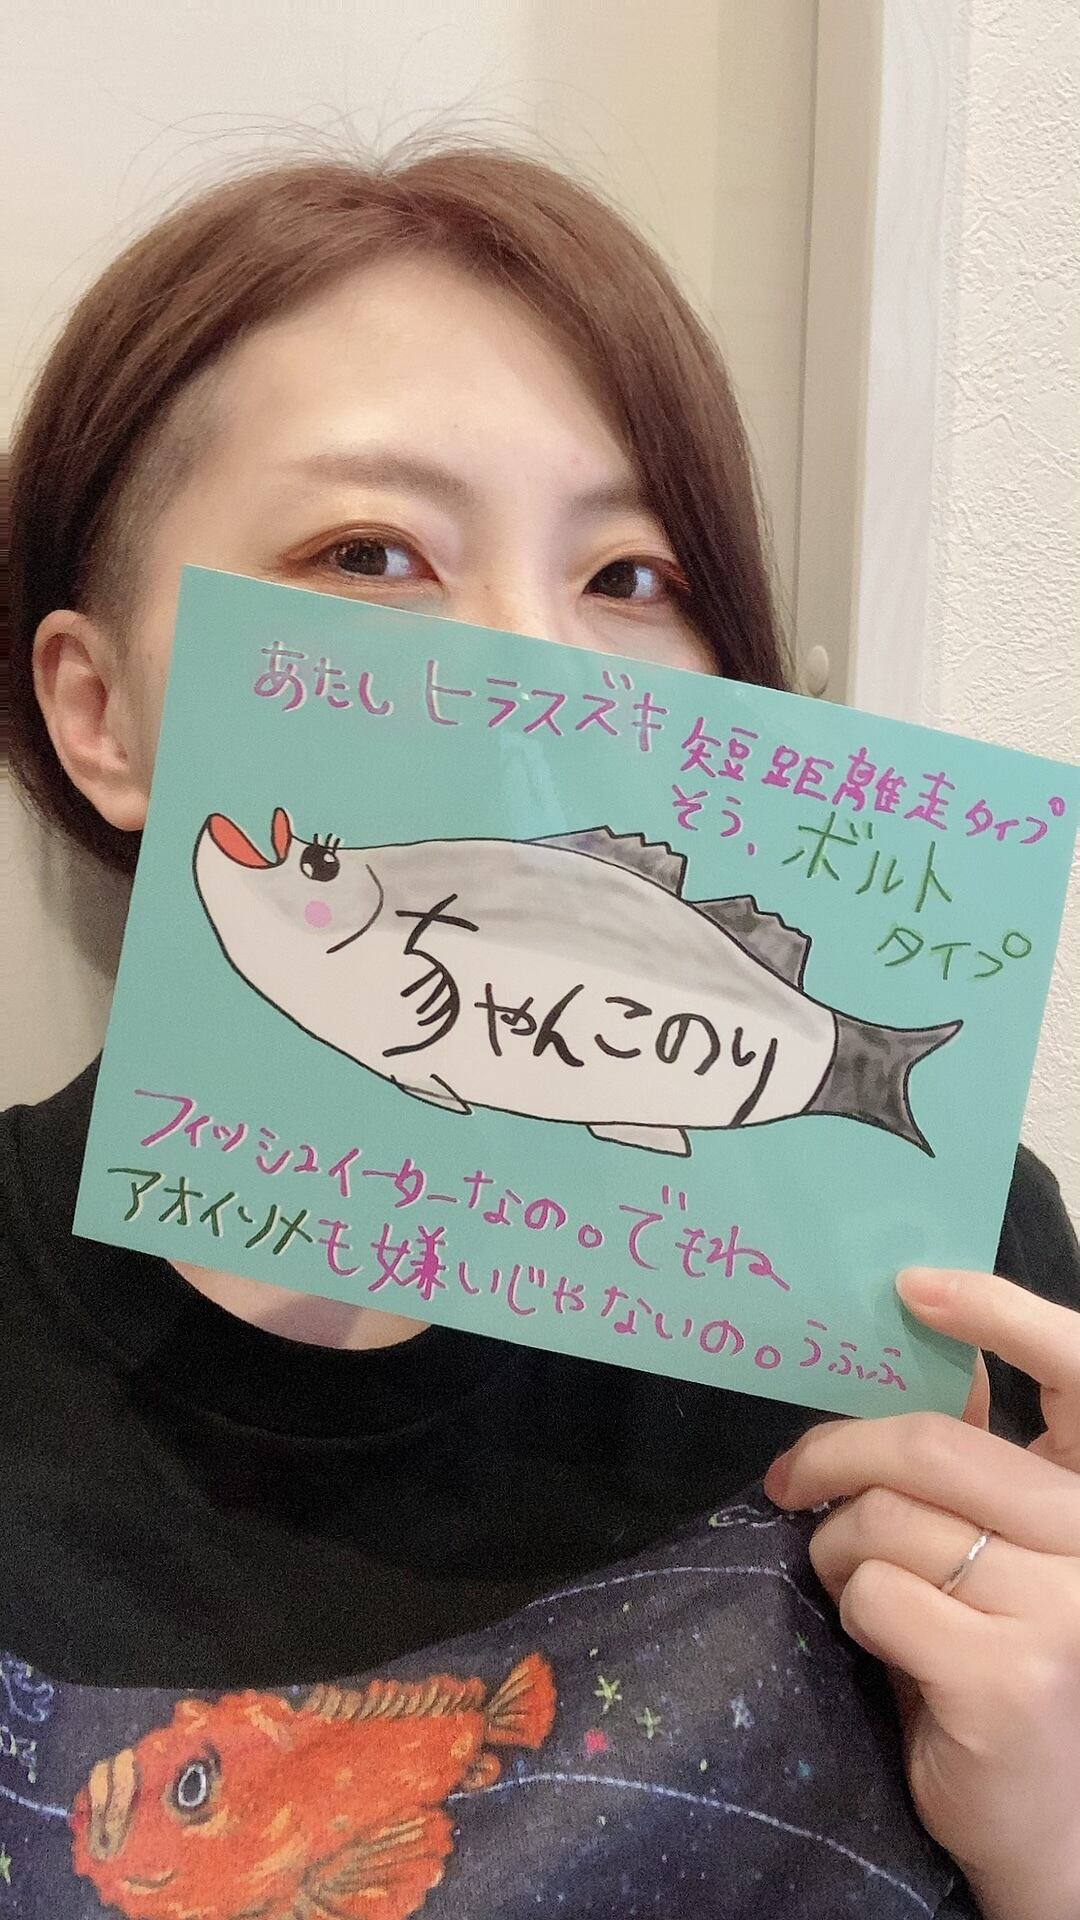 あたし ヒラスズキ 短距離走タイプ
そう、ボルト
タイプ
ちゃんこのり
フィッシュイーターなの。でもね
アオイソメも嫌いじゃないの。うふふ